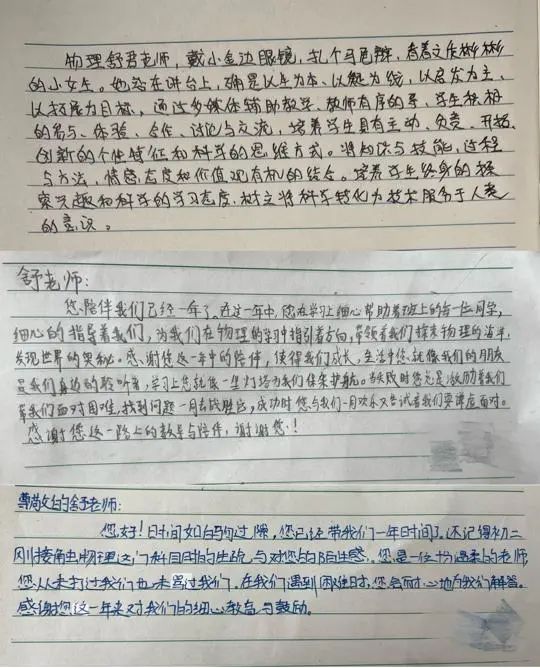 物理舒君老师，戴小金边眼镜，扎个马尾辫，看着文质彬彬
的小女生。她站在讲台上，确是以生为本、以趣为线，以启发为主、
以拓展为目标，通过多媒体辅助教学、教师有序的导、学生积极
的参与、体验、合作、讨论与交流，培养学生具有主动、负责、开拓、
创新的个性特征和科学的思维方式。将知识与技能，过程
与方法，情感态度和价值观有机的结合。培养学生终身的探
索兴趣和科学的学习态度，树立将科学转化为技术服务于人类
的意识。
舒老师：
您陪伴我们已经一年了。在这一年中，您在学习上细心帮助着班上的每一位同学，
细心的指导着我们，为我们在物理的学习中指引着方向，带领着我们探索物理的海洋，
发现世界的奥秘。感谢您这一年中的陪伴，使得我们成长，生活中您就像我们的朋友
是我们身边的聆听者，学习上您就像一座灯塔为我们保驾护航。当失败时您总是激励着我们
带我们面对困难，找到问题一同去战胜它，成功时您与我们一同欢乐又告诫着我们要谦虚面对。
感谢您这一路上的教导与陪伴，谢谢您！
尊敬的舒老师：
您好！时间如白驹过隙，您已经带我们一年时间了。还记得初二
刚接触物理这门科目时的生疏与对您的陌生感。您是一位十分温柔的老师，
您从未打过我们也未骂过我们。在我们遇到困难时，您会耐心地为我们解答。
感谢您这一年来对我们的细心教育与鼓励。